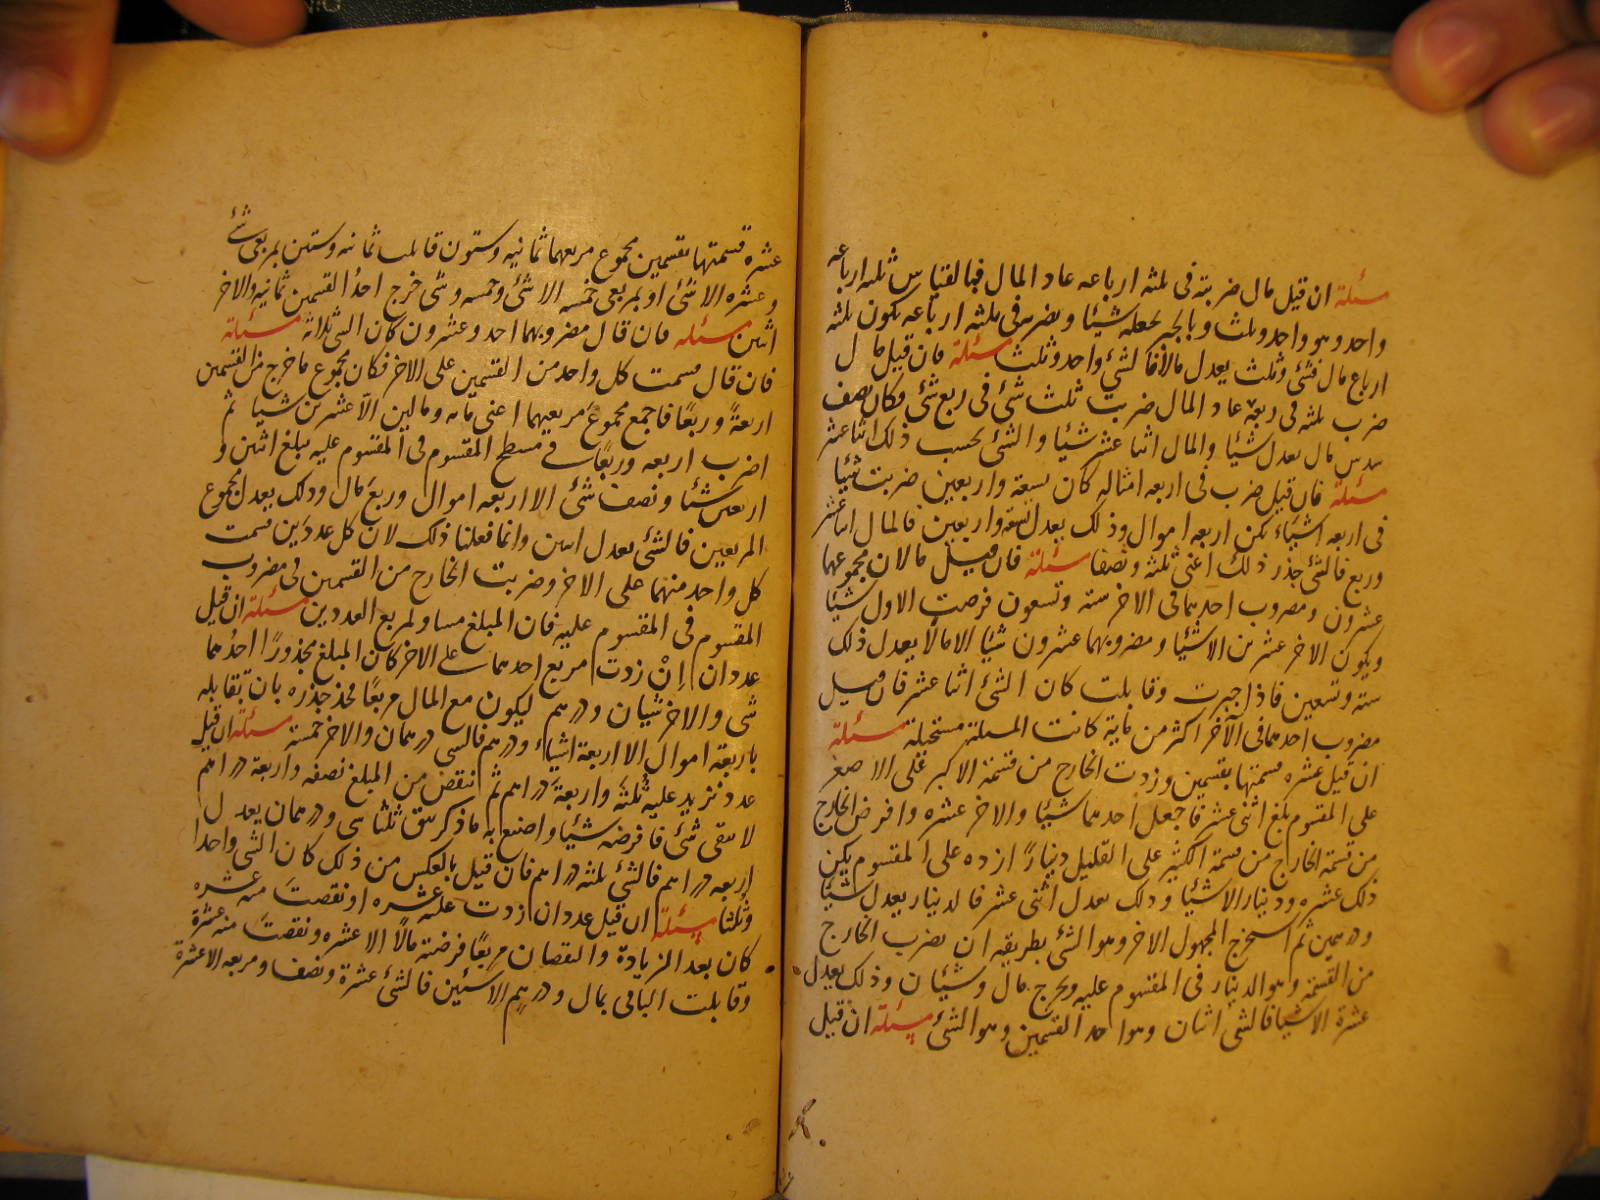 مسئلة ان قيل مال ضربته فى ثلثه ارباعه عاد المال فبالقياس ثلثه ارباعه
واحد وهو واحد وثلث وبالجبر نجعله شيئا ونضربه فى ثلثه ارباعه يكون ثلثه
ارباع مال فشئ وثلث يعدل مالا فالشئ واحد وثلث مسئلة فان قيل مال
ضرب ثلثه فى ربعه عاد المال ضربت ثلث شئ فى ربع شئ فكان نصف
سدس مال يعدل شيئا والمال اثنا عشر شيئا والشئ بحسب ذلك اثنا عشر
مسئلة فان قيل ضرب فى اربعه امثاله كان تسعة واربعين ضربت شيئا
فى اربعه اشياء يكن اربعه اموال وذلك يعدل تسعة واربعين فالمال اثنا عشر
وربع فالشئ جذر ذلك اعنى ثلثة ونصفا مسئلة فان قيل مالان مجموعهما
عشرون ومضروب احدهما فى الاخر ستة وتسعون فرضت الاول شيئا
ويكون الاخر عشرين الا شيئا ومضروبهما عشرون شيئا الا مالا يعدل ذلك
ستة وتسعين فاذا جبرت وقابلت كان الشئ اثنا عشر فان قيل
مضروب احدهما فى الآخر اكثر من مايه كانت المسئلة مستحيلة مسئلة
ان قيل عشره قسمتها بقسمين وزدت الخارج من قسمة الاكبر على الاصغر
على المقسوم بلغ اثنى عشر فاجعل احدهما شيئا والاخر عشره وافرض الخارج
من قسمة الخارج من قسمة الكثير على القليل دينارا ازده على المقسوم يكن
ذلك عشره ودينار الا شيئا وذلك يعدل اثنى عشر فالدينار يعدل شيئا
ودرهمين ثم استخرج المجهول الاخر وهو الشئ بطريقه ان تضرب الخارج
من القسمة وهو الدينار فى المقسوم عليه ويخرج مال وشيئان وذلك يعدل
عشرة الا شيئا فالشئ اثنان وهو احد القسمين وهو الشئ مسئلة ان قيل
عشره قسمتها بقسمين مجموع مربعهما ثمانيه وستون قابلت ثمانيه وستين بمربعى شئ
وعشره الا شئ او بمربعى خمسه الا شئ وخمسه وشئ خرج احد القسمين ثمانيه والاخر
اثنين مسئله فان قال مضروبهما احد وعشرون كان الشئ ثلاثة مسئلة
فان قال قسمت كل واحد من القسمين على الاخر فكان مجموع ما خرج من القسمين
اربعة وربعا فاجمع مجموع مربعيهما اعنى مايه ومالين الا عشرين شيئا ثم
اضرب اربعه وربعا فى مسطح المقسوم فى المقسوم عليه يبلغ اثنين و
اربعين شيئا ونصف شئ الا اربعه اموال وربع مال وذلك يعدل مجموع
المربعين فالشئ يعدل اثنين وانما فعلنا ذلك لان كل عددين قسمت
كل واحد منهما على الاخر وضربت الخارج من القسمين فى مضروب
المقسوم فى المقسوم عليه فان المبلغ مساو لمربع العددين مسئلة ان قيل
عددان ان زدت مربع احدهما على الاخر كان المبلغ مجذورا احدهما
شئ والاخر شيئان ودرهم ليكون مع المال مربعا فخذ جذره بان تقابله
باربعة اموال الا اربعة اشياء ودرهم فالشئ درهمان والاخر خمسة مسئلة ان قيل
عدد نزيد عليه ثلثه واربعة دراهم ثم انتقص من المبلغ نصفه واربعة دراهم
لا يبقى شئ فافرضه شيئا واصنع به ما ذكر يبق ثلثا شئ ودرهمان يعدل
اربعه دراهم فالشئ ثلثه دراهم فان قيل بالعكس من ذلك كان الشئ واحدا
وثلثا مسئلة ان قيل عددان ازدت عليه عشره او نقصت منه عشره
كان بعد الزيادة والنقصان مربعا فرضته مالا الا عشره ونقصت منه عشرة
وقابلت الباقى بمال ودرهم الا شيئين فالشئ عشرة ونصف ومربعه الا عشرة